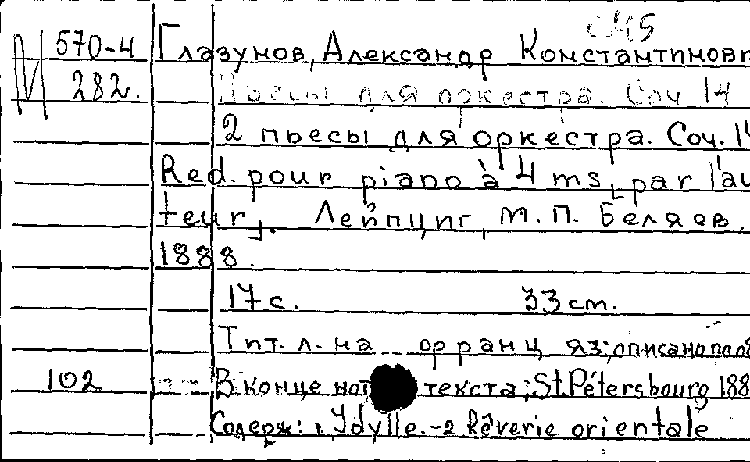 М 570-4 Глазунов, Александр Константинович
282. [Пьесы для оркестра. Соч. 14
2 пьесы для оркестра. Соч. 14
Red. pour piano à 4 ms [par l'au
teur]. Лейпциг, М. П. Беляев,
1888.
17 с. 33 cm.
Тит. л. на франц яз; описано по об
102 В конце нот текста; St. Pétersbourg 188
Содерж: 1. Idylle. - 2 Rêverie orientale